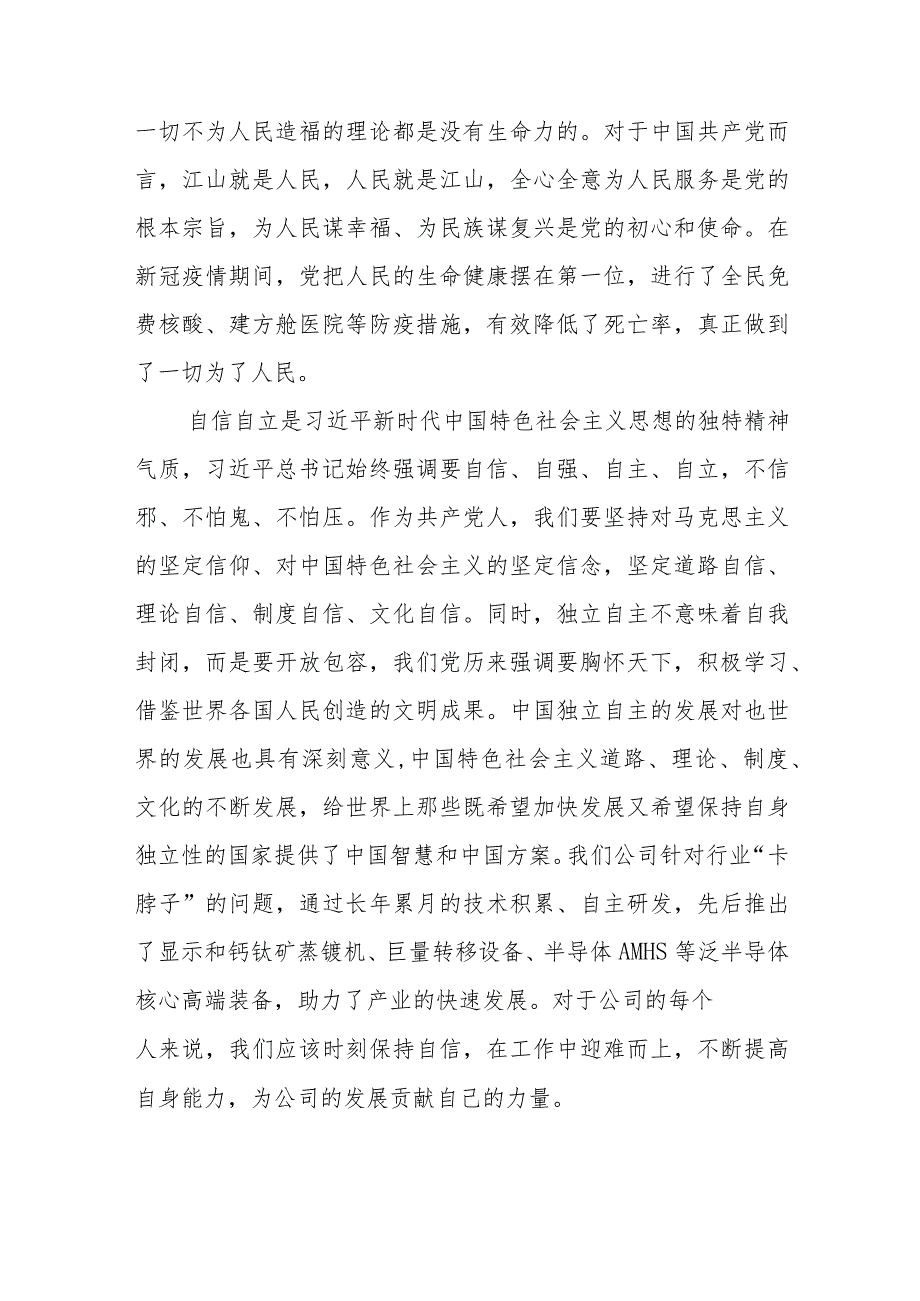 一切不为人民造福的理论都是没有生命力的。对于中国共产党而
言，江山就是人民，人民就是江山，全心全意为人民服务是党的
根本宗旨，为人民谋幸福、为民族谋复兴是党的初心和使命。在
新冠疫情期间，党把人民的生命健康摆在第一位，进行了全民免
费核酸、建方舱医院等防疫措施，有效降低了死亡率，真正做到
了一切为了人民。
自信自立是习近平新时代中国特色社会主义思想的独特精神
气质，习近平总书记始终强调要自信、自强、自主、自立，不信
邪、不怕鬼、不怕压。作为共产党人，我们要坚持对马克思主义
的坚定信仰、对中国特色社会主义的坚定信念，坚定道路自信、
理论自信、制度自信、文化自信。同时，独立自主不意味着自我
封闭，而是要开放包容，我们党历来强调要胸怀天下，积极学习、
借鉴世界各国人民创造的文明成果。中国独立自主的发展对也世
界的发展也具有深刻意义,中国特色社会主义道路、理论、制度、
文化的不断发展，给世界上那些既希望加快发展又希望保持自身
独立性的国家提供了中国智慧和中国方案。我们公司针对行业“卡
脖子”的问题，通过长年累月的技术积累、自主研发，先后推出
了显示和钙钛矿蒸镀机、巨量转移设备、半导体 AMHS 等泛半导体
核心高端装备，助力了产业的快速发展。对于公司的每个
人来说，我们应该时刻保持自信，在工作中迎难而上，不断提高
自身能力，为公司的发展贡献自己的力量。